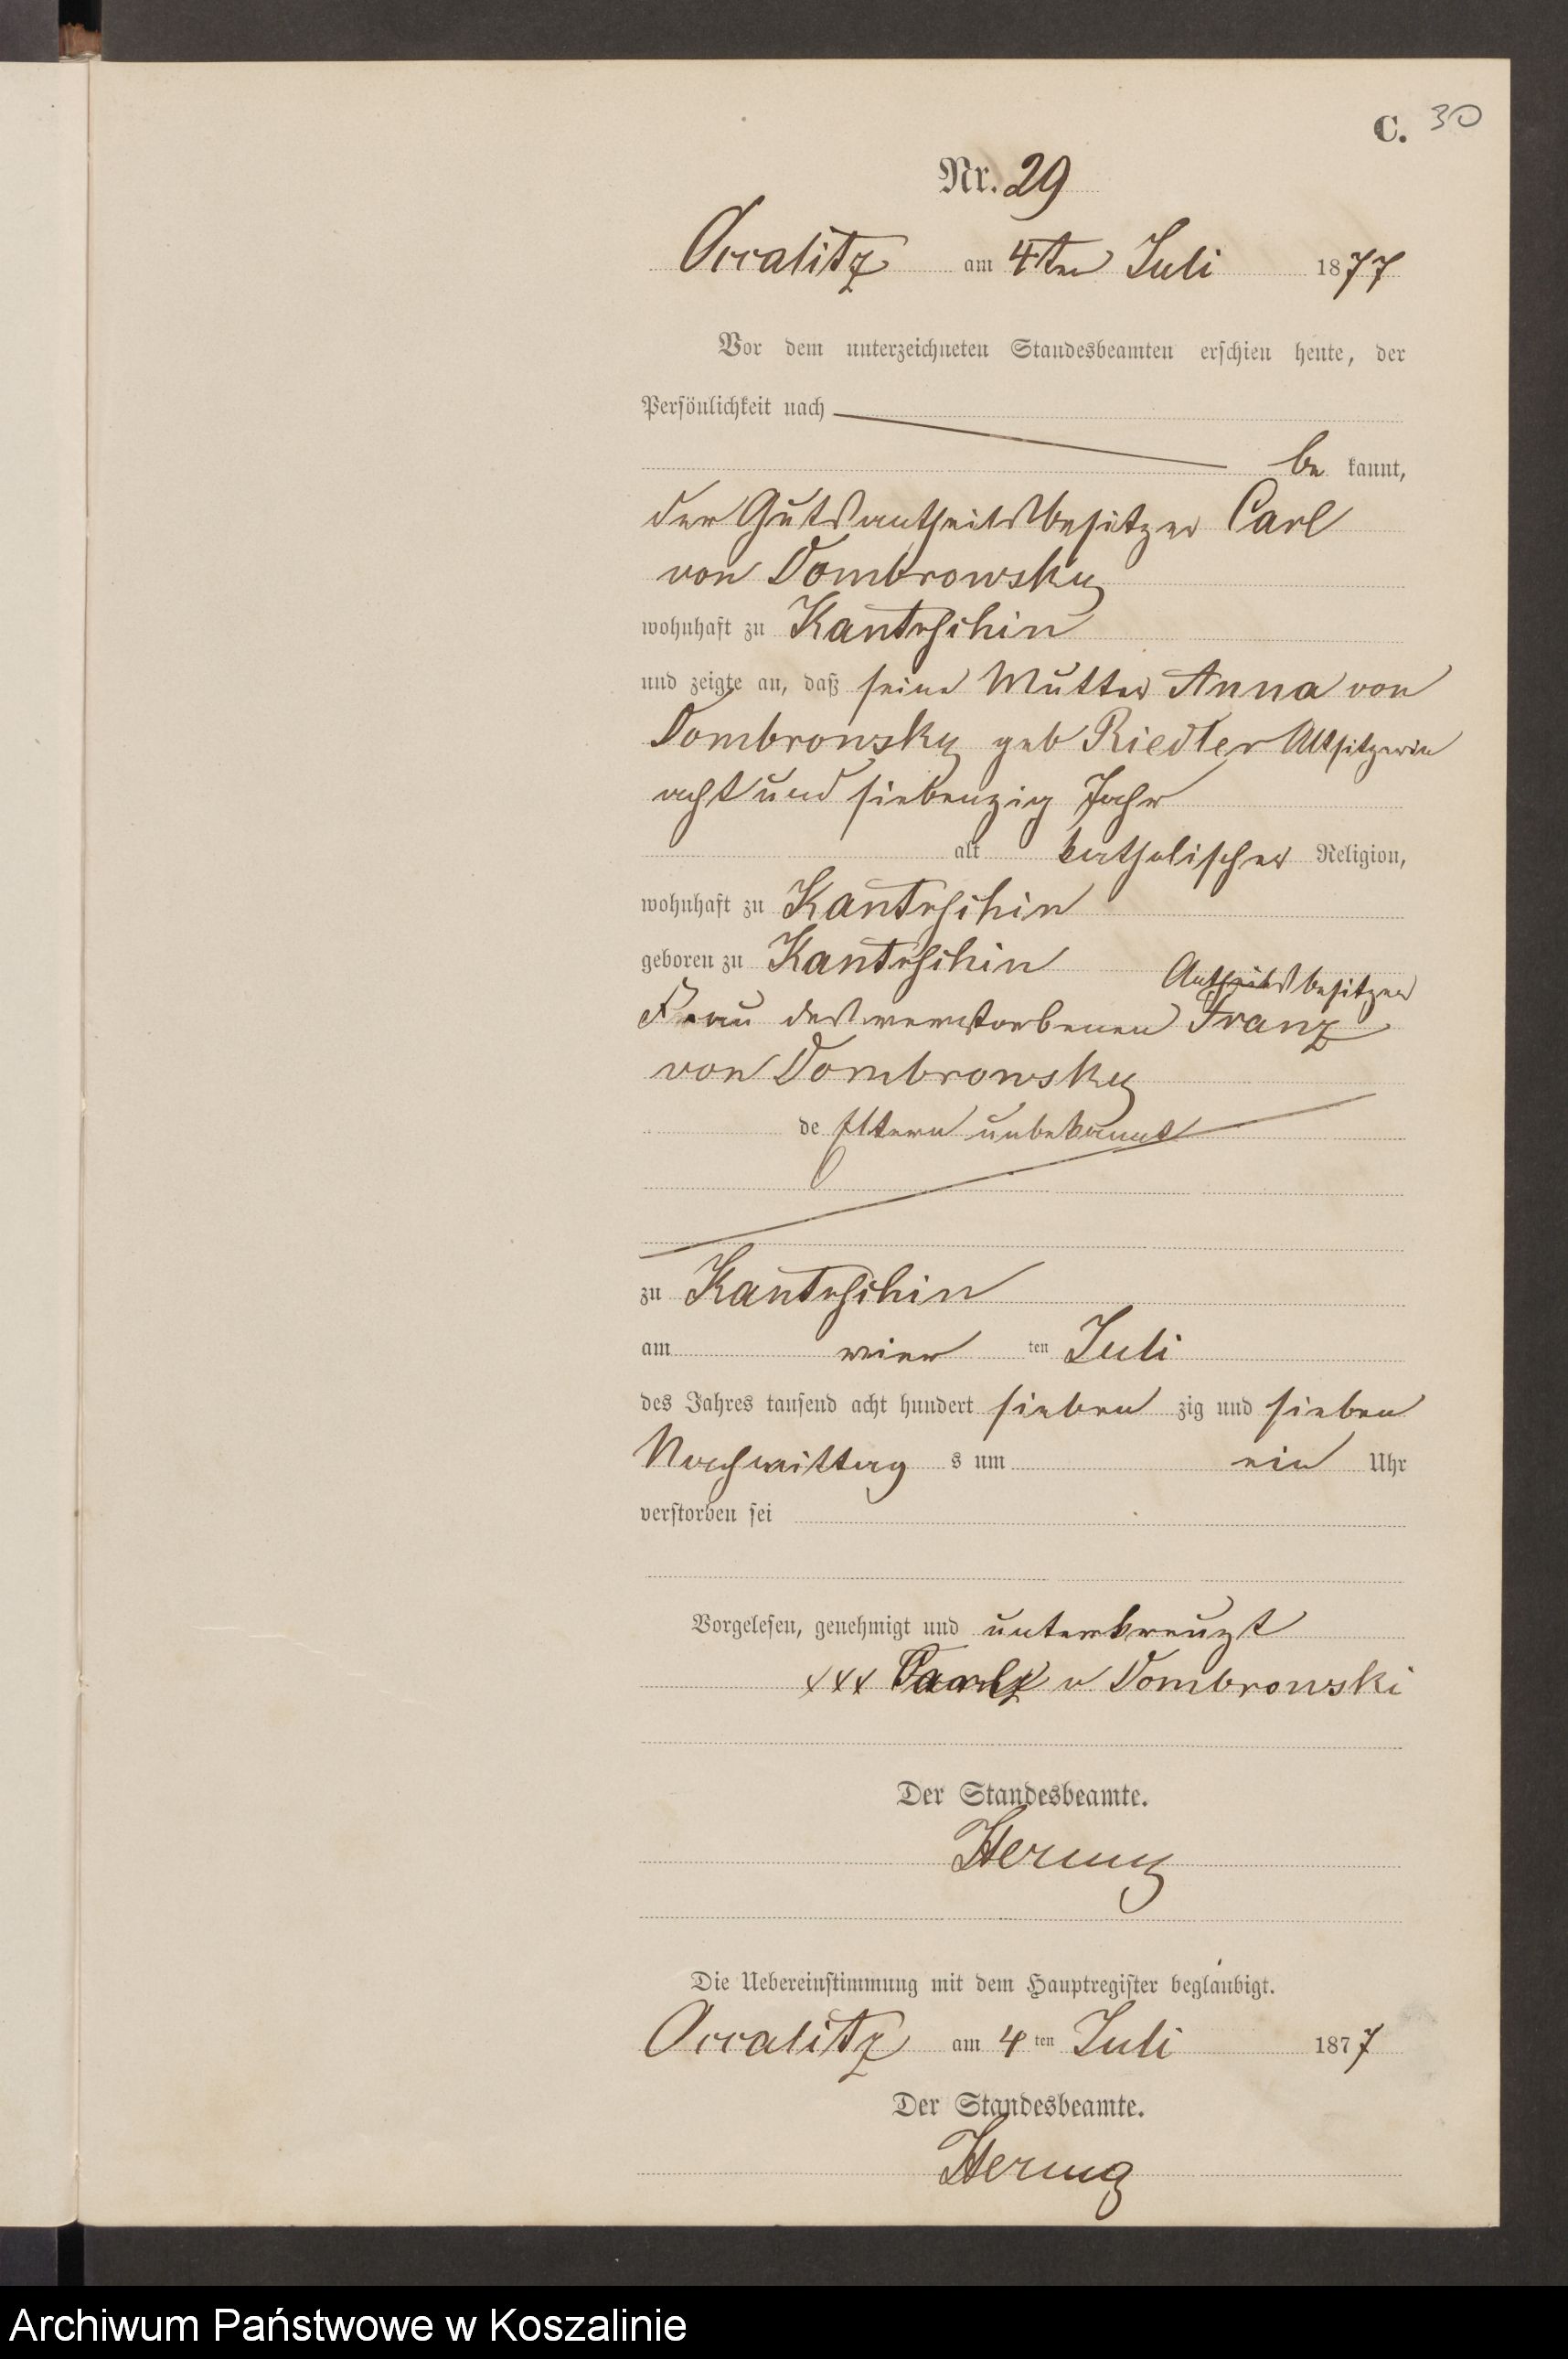 C. 30
Nr. 29
Occalitz am 4ten Juli 1877
Vor dem unterzeichneten Standesbeamten erschien heute, der
Persönlichkeit nach
be kannt,
der Gutsantheilsbesitzer Carl
von Dombrowsky
wohnhaft zu Kantrschin
und zeigte an, daß seine Mutter Anna von
Dombrowsky geb Riedler Altsitzerin
acht und siebenzig Jahr
alt katholischer Religion,
wohnhaft zu Kantrschin
geboren zu Kantrschin
Antheilsbesitzer
Frau des verstorbenen Franz
von Dombrowsky
de Eltern unbekannt
zu Kantrschin
am vier ten Juli
des Jahres tausend acht hundert sieben zig und sieben
Nachmittag s um ein Uhr
verstorben sei
Vorgelesen, genehmigt und unterkreuzt
xxx Carl v Dombrowski
Der Standesbeamte.
Die Uebereinstimmung mit dem Hauptregister beglaubigt.
Occalitz am 4 ten Juli 1877
Der Standesbeamte.
Archiwum Państwowe w Koszalinie